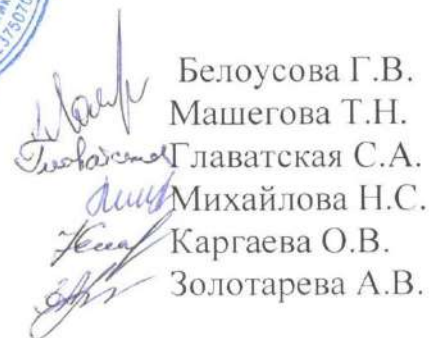 Белоусова Г.В.
Машегова Т.Н.
Главатская С.А.
Михайлова Н.С.
Каргаева О.В.
Золотарева А.В.